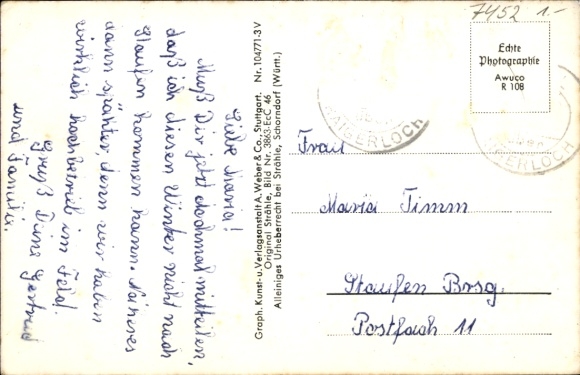 Liebe Maria!
Muß Dir jetzt dochmal mitteilen,
daß ich diesen Winter nicht nach
Staufen kommen kann. Näheres
dann später, denn wir haben
wirklich hochbetrieb im Feld!
Gruß Deine Gertrud
und Familie.
Graph. Kunst-u.Verlagsanstalt A. Weber & Co., Stuttgart. Nr. 104771-3V
Original Strähle, Bild Nr. 3863-EcC 46
Alleiniges Urheberrecht bei Strähle, Schorndorf (Württ.)
7452 1.-
Echte
Photographie
Awuco
R 108
HAIGERLOCH
HAIGERLOCH
Frau
Maria Timm
Staufen Brsg.
Postfach 11